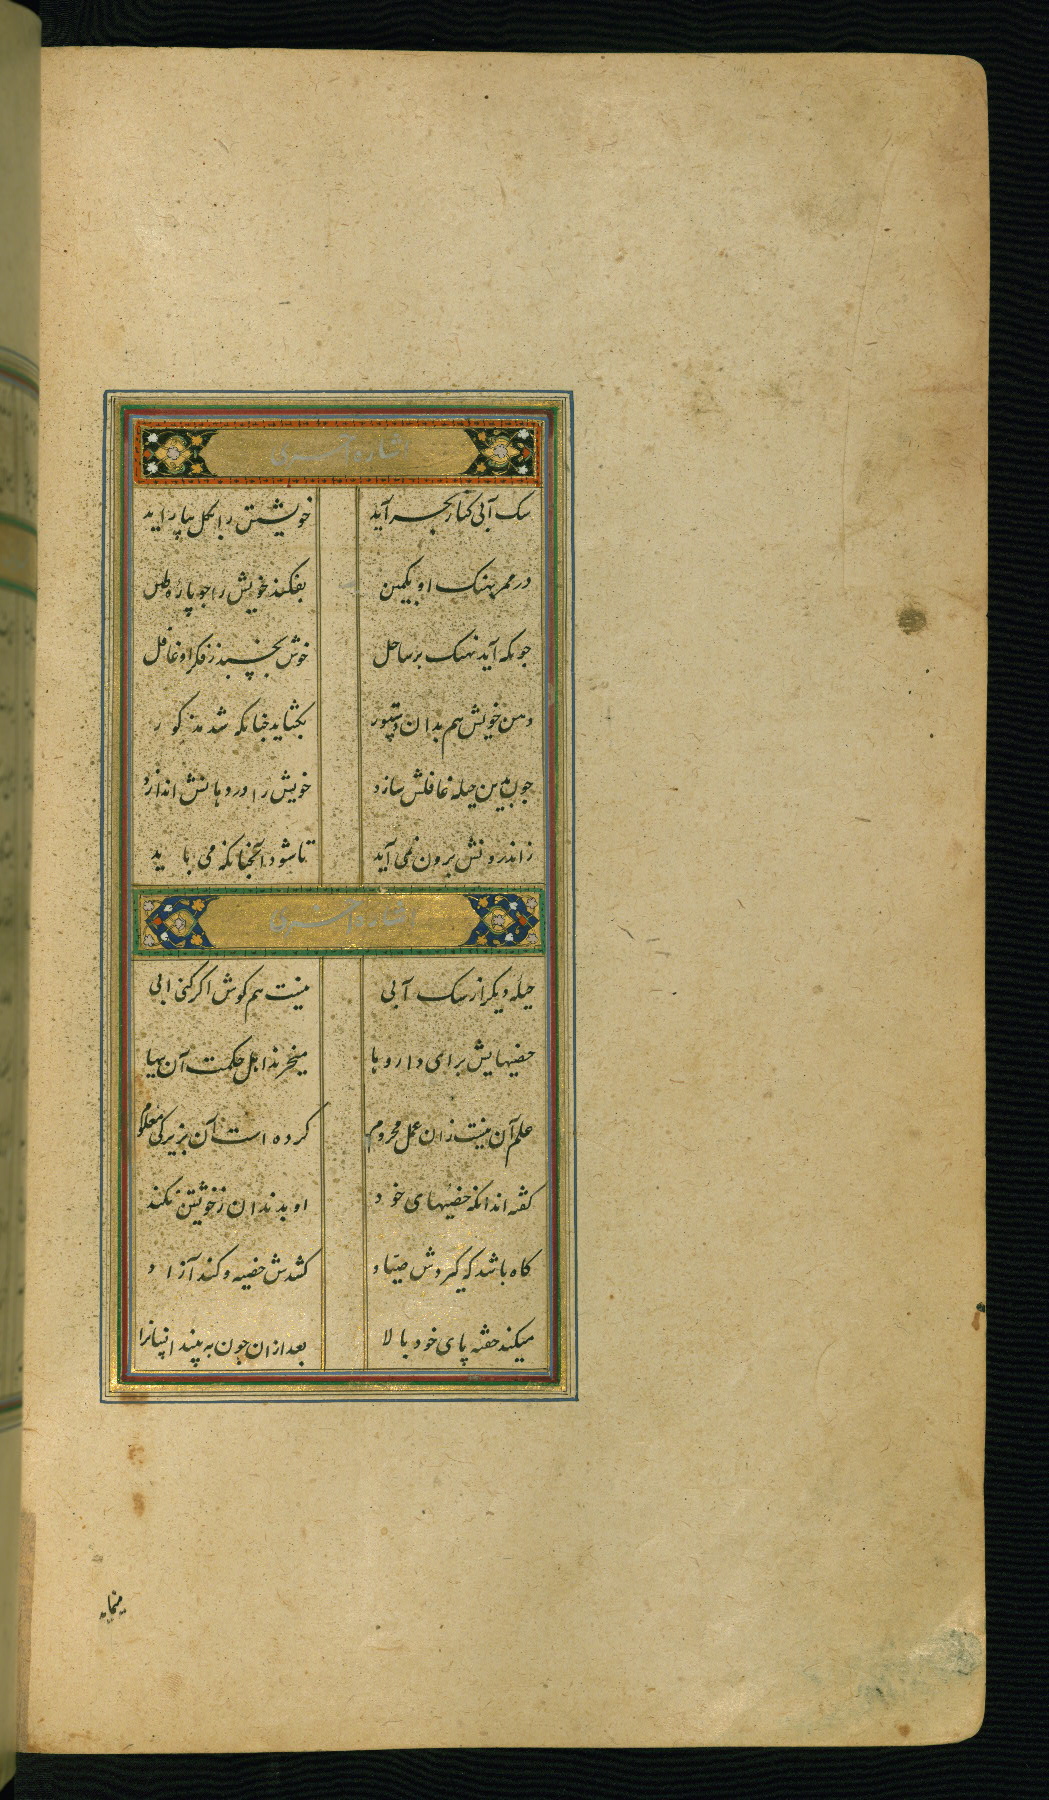 اشاره اخری
سک آبی کنار بحر آید
خویشتن را بکل بیاراید
در ممر نهنک او بکمین
بفکند خویش را جو پاره طین
جونکه آید نهنک بر ساحل
خوش بخسبد ز فکر او غافل
دهن خویش هم بدان دستور
بکشاید جنانکه شد مذکور
جون بدین حیله غافلش سازد
خویش را در دهانش اندازد
ز اندرونش برون نمی آید
تا شود آنجنانکه می باید
اشاره اخری
حیله دیکر از سک آبی
نیست هم کوش اکر کنی ابی
خصیهایش برای داروها
میخرند اهل حکمت آن بها
علم آن نیست زان عمل محروم
کرده است آن بزیرکی معلوم
کفته اند انکه خصیهای خود
او بدندان ز خویشتن بکند
کاه باشد که کیردش صیاد
کشدش خصیه و کند آزاد
میکند حقنه پای خود بالا
بعد ازان جون به بیند انسانرا
مینماید